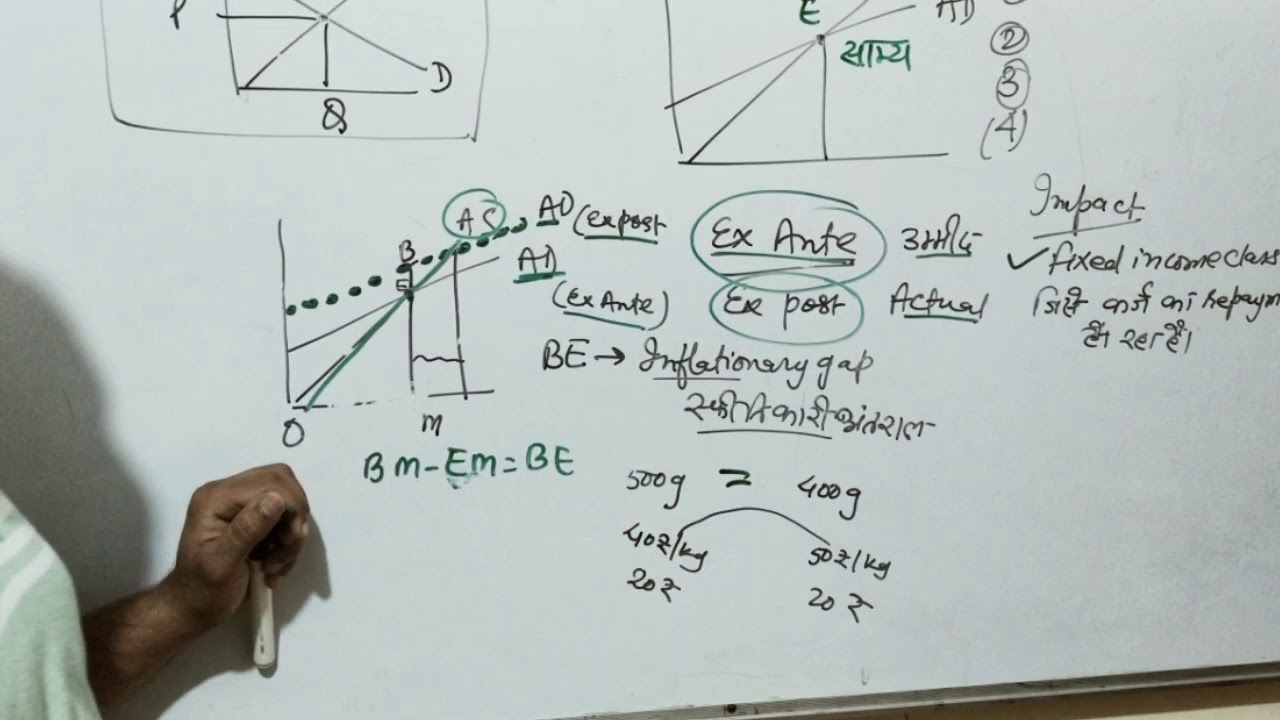 P
D
Q
E
AD
साम्य
②
③
(4)
AS
AD (expost
B
E
AD
(Ex Ante)
O
M
BM-EM=BE
Ex Ante उम्मीद
Ex post Actual
BE → Inflationary gap
स्फीतिकारी अंतराल
500g = 400g
40₹/kg 50₹/kg
20₹ 20₹
Impact
✓ fixed income class
जिसे कर्ज का repaym
हो रहा है।